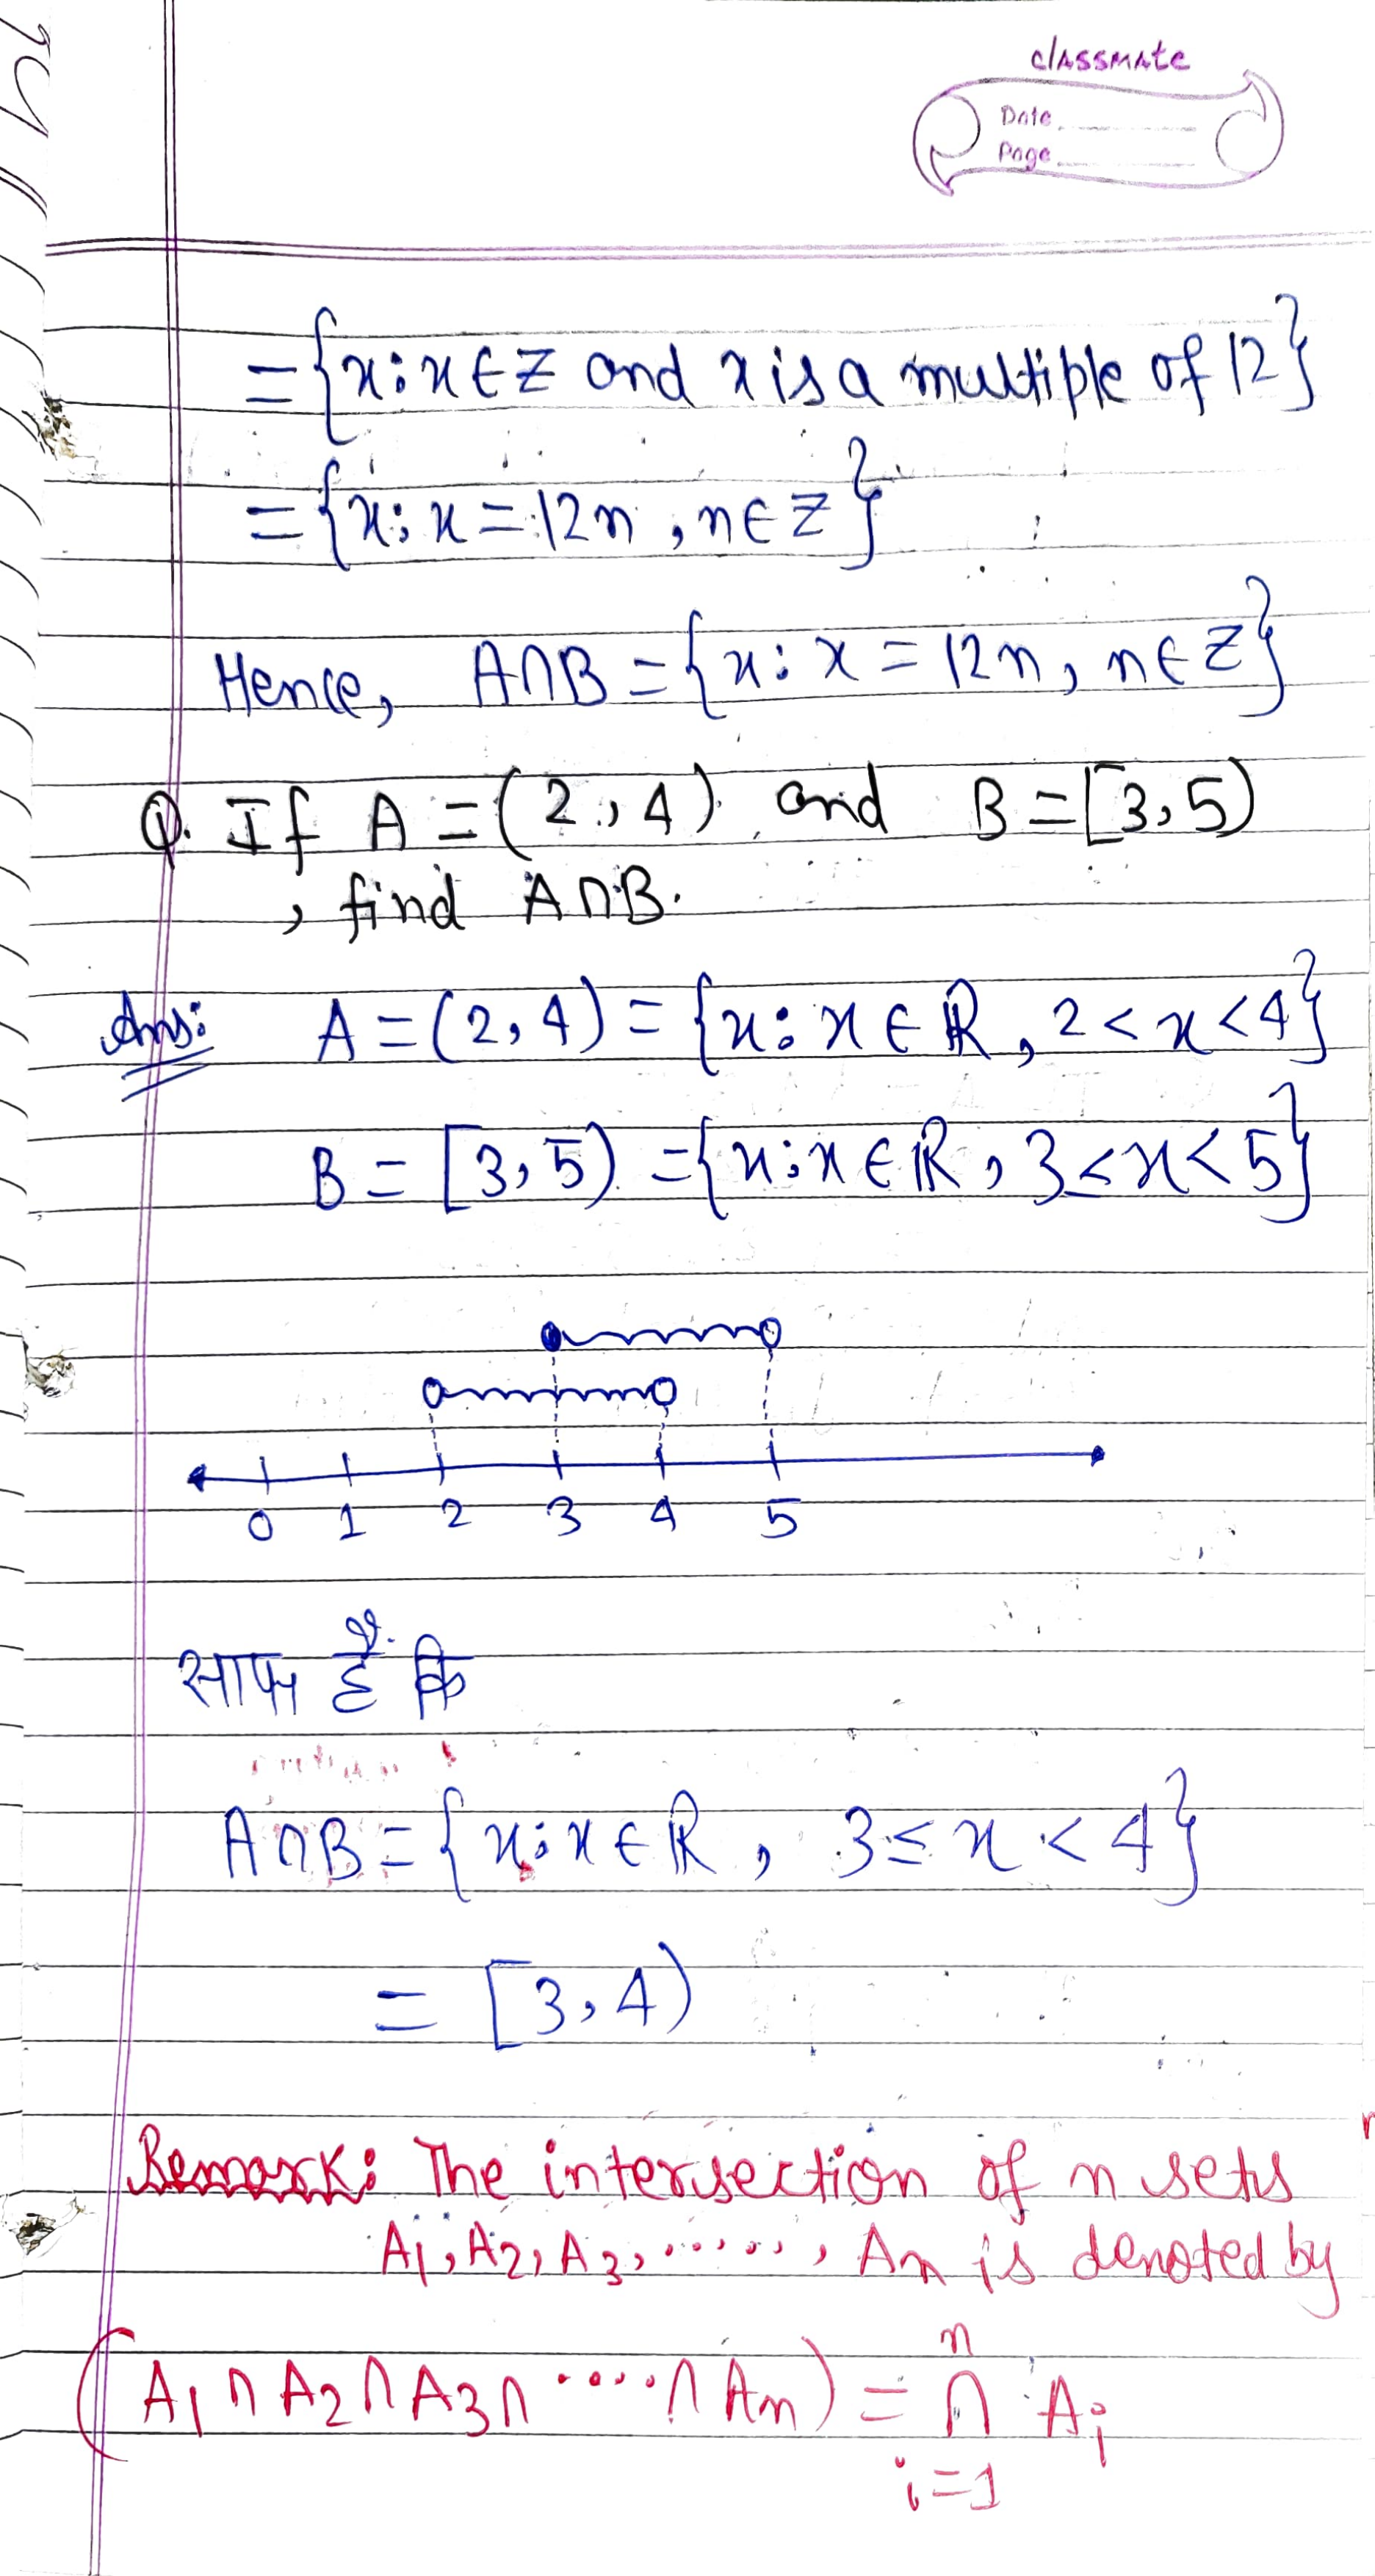 classmate
Date
Page
= {x : x ∈ Z and x is a multiple of 12}
= {x : x = 12n , n ∈ Z}
Hence, A∩B = {x : x = 12n, n ∈ Z}
Q. If A = (2, 4) and B = [3, 5)
, find A∩B.
Ans: A = (2, 4) = {x : x ∈ ℝ, 2 < x < 4}
B = [3, 5) = {x : x ∈ ℝ, 3 ≤ x < 5}
0 1 2 3 4 5
साफ है कि
A∩B = {x : x ∈ ℝ, 3 ≤ x < 4}
= [3, 4)
Remark: The intersection of n sets
A₁, A₂, A₃, ......, Aₙ is denoted by
(A₁ ∩ A₂ ∩ A₃ ∩ ..... ∩ Aₙ) = ⋂ᵢ₌₁ⁿ Aᵢ